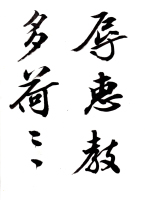 辱惠教
多荷〻